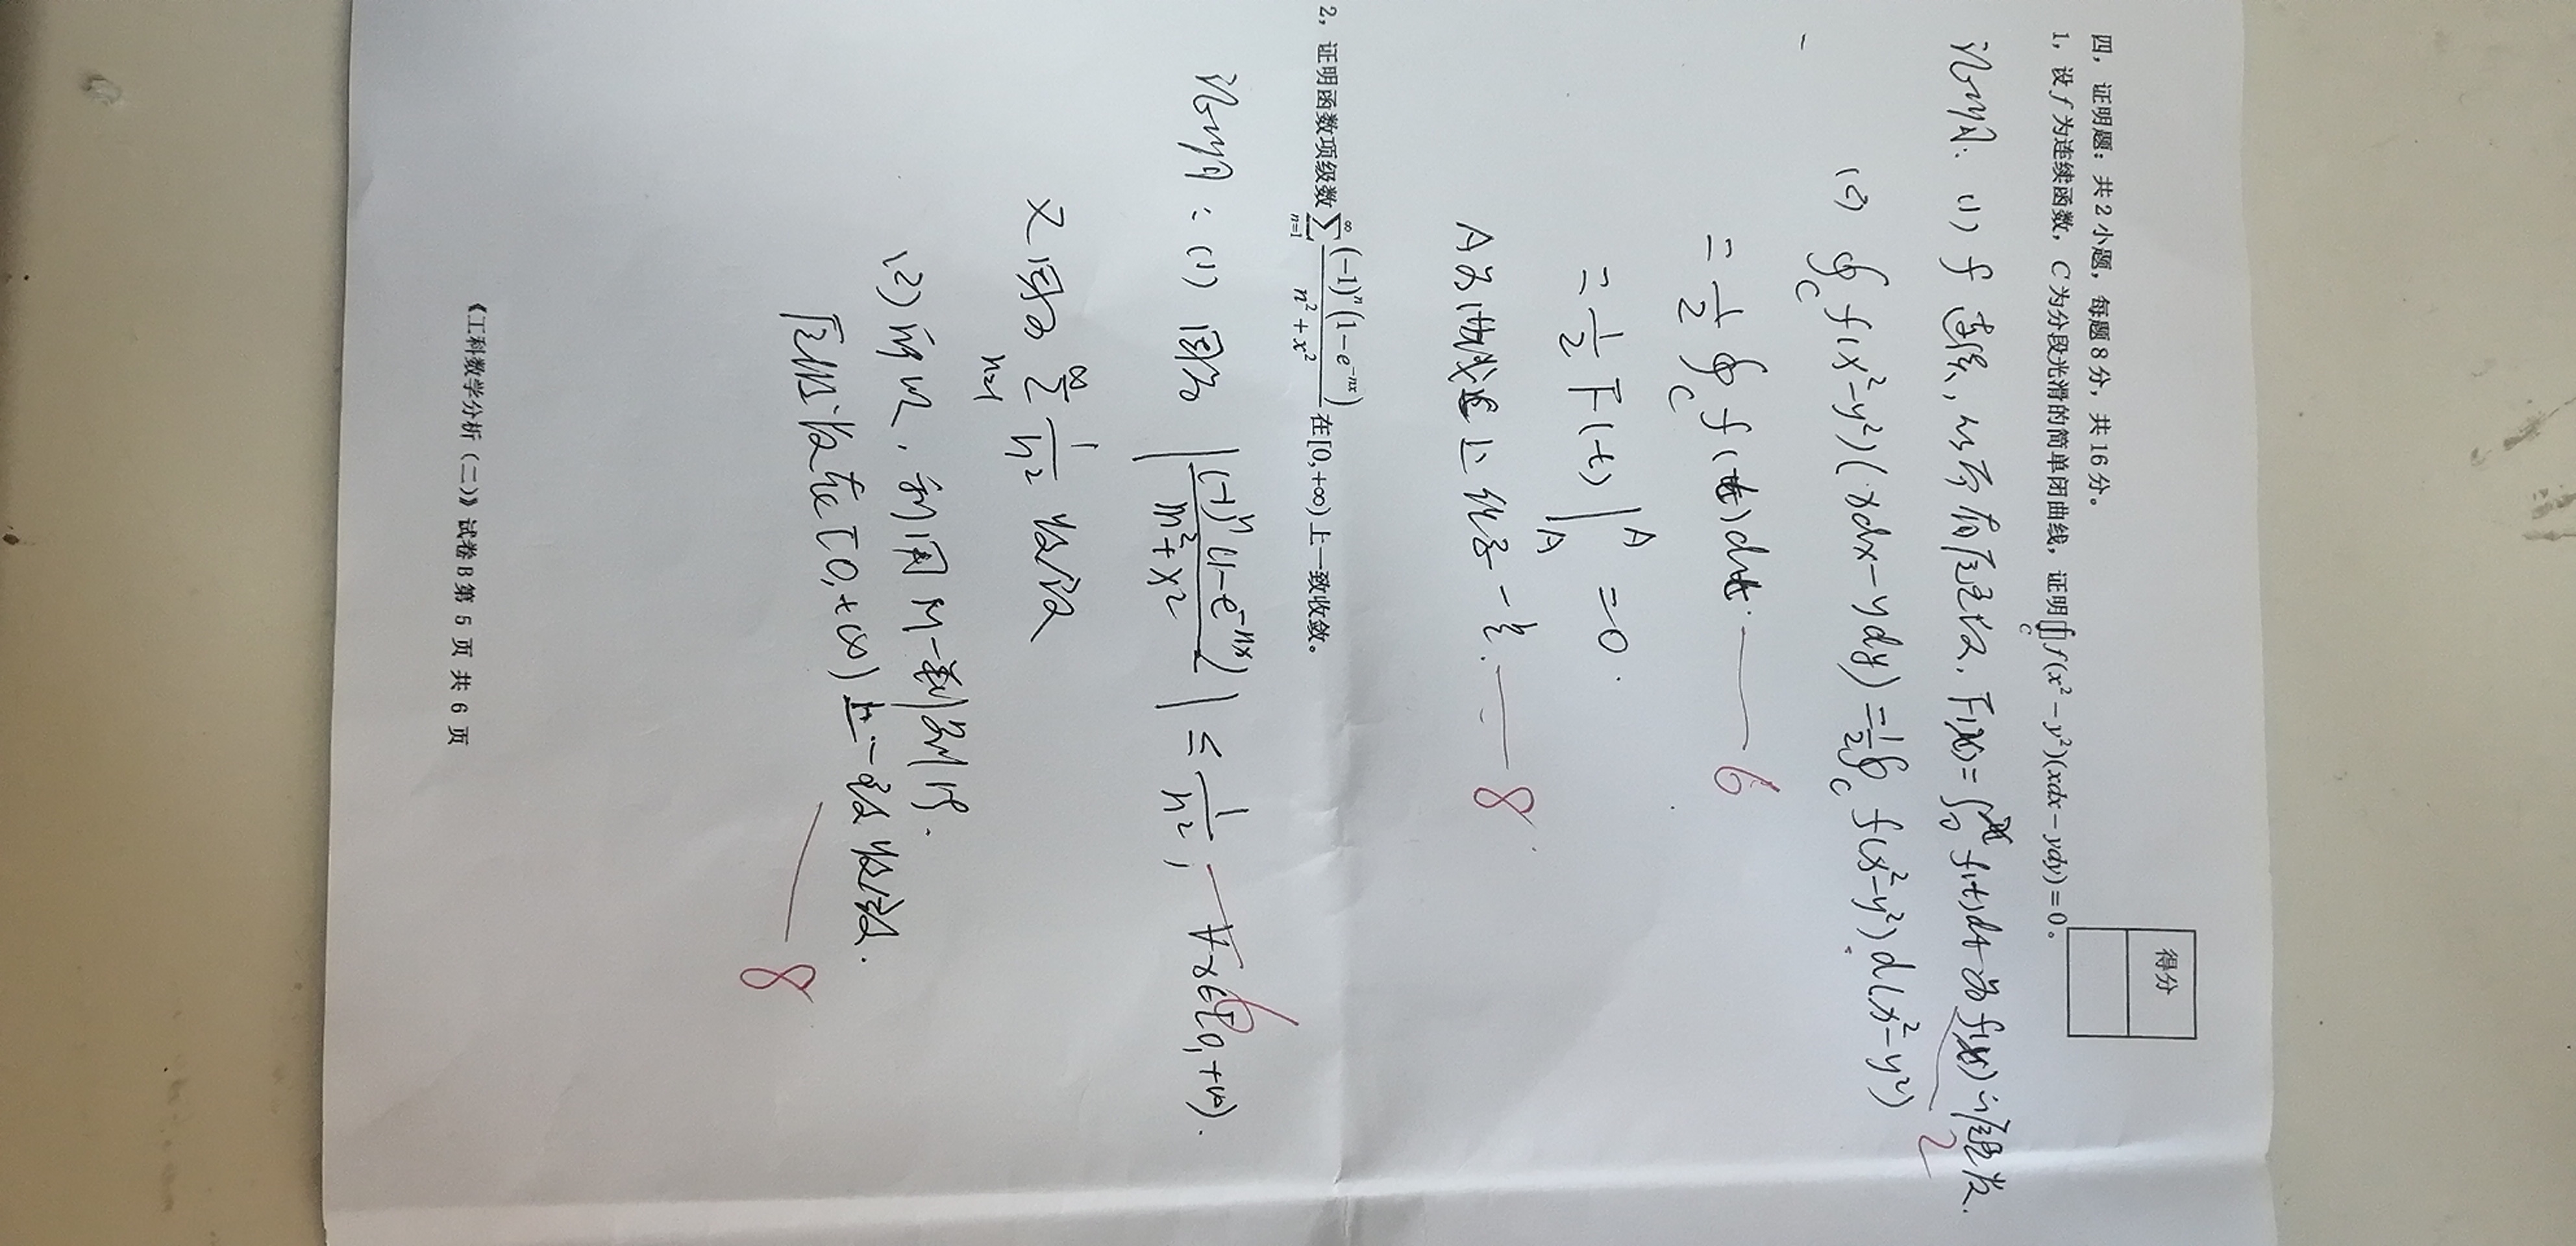 四，证明题：共2小题，每题8分，共16分。
得分
1，设 f 为连续函数，C 为分段光滑的简单闭曲线，证明∮_C f(x²−y²)(xdx−ydy)=0。
证明：(1) f 连续，从而有原函数，F(x)=∫₀ˣ f(t)dt 为 f(x) 的原函数.
2
(2) ∮_C f(x²−y²)(xdx−ydy)=½∮_C f(x²−y²)d(x²−y²)
=½∮_C f(t)dt.
6
=½F(t)|_A^A =0.
A为曲线上任意一点.
8
2，证明函数项级数∑_{n=1}^∞ (−1)ⁿ(1−e^{−nx})/(n²+x²) 在[0,+∞)上一致收敛。
证明：(1) 因为 |(−1)ⁿ(1−e^{−nx})/(n²+x²)| ≤ 1/n², ∀x∈[0,+∞).
6
又因为 ∑_{n=1}^∞ 1/n² 收敛
(2) 所以，利用M-判别法，
原级数在[0,+∞)上一致收敛.
8
《工科数学分析（二）》试卷B第 5 页 共 6 页